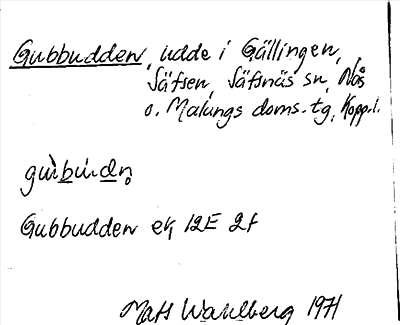 Gubbudden, udde i Gällingen,
Säfsen, Säfsnäs sn, Nås
o. Malungs doms.tg, Kopp.l.
Gubbudden ek 12E 2f
Mats Wahlberg 1971